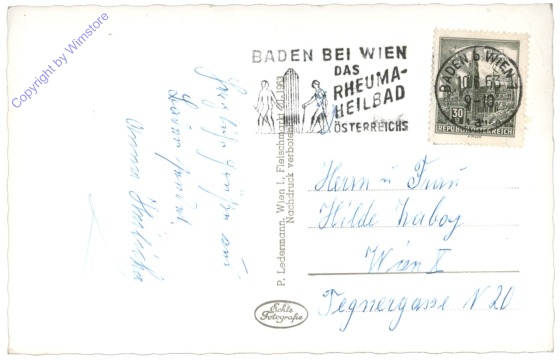 Copyright by Wimstore
BADEN BEI WIEN
DAS
RHEUMA-
HEILBAD
ÖSTERREICHS
BADEN b. WIEN 1
9-10
30
REPUBLIK ÖSTERREICH
P. Ledermann, Wien I., Fleischmarkt
Nachdruck verboten
Echte
Fotografie
Herzliche Grüße aus
Baden sendet
Herrn u. Frau
Hilde
Wien X
Tegnergasse N 20